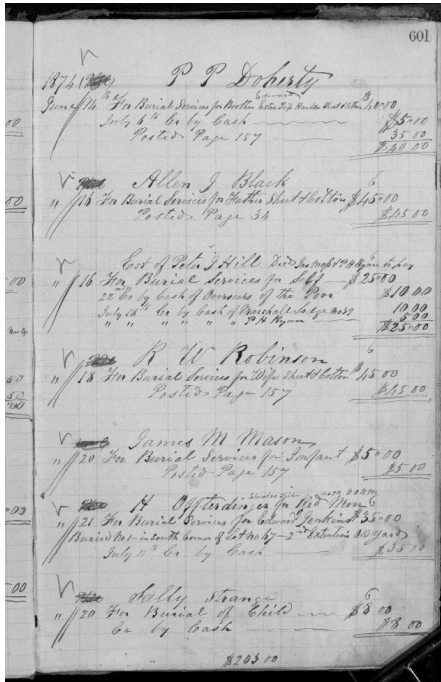 601
1874 P P Doherty
Edward
June 14th For Burial Services for Brother Extra Trip Handles Sheet & Cotton $40.00
July 6th Cr by Cash $5.00
Posted Page 157 35 00
$40 00
Allen J Black
" 15 For Burial Services for Father Sheet & Cotton $45.00
Posted Page 34 $45.00
Est of Peter J Hill
" 16 For Burial Services for Self $25.00
22nd Cr by Cash of Overseers of the Poor $10.00
July 18th Cr by Cash of Marshall Lodge No 39 10.00
" " " " " P H Ryan 5.00
$25.00
R W Robinson
" 18 For Burial Services for Wife Sheet & Cotton $45.00
Posted Page 157 $45.00
James M Mason
" 20 For Burial Services for Infant $5.00
Posted Page 157 $5.00
H Offterdinger for Red Men
" 21 For Burial Services for Edward Jenkins $35.00
Buried No 1 in South Corner of Lot No 67 - 2nd Extention Old Yard
July 11th Cr by Cash $35.00
Sally Strange
" 20 For Burial of Child $8 00
Cr by Cash $8 00
$203 00